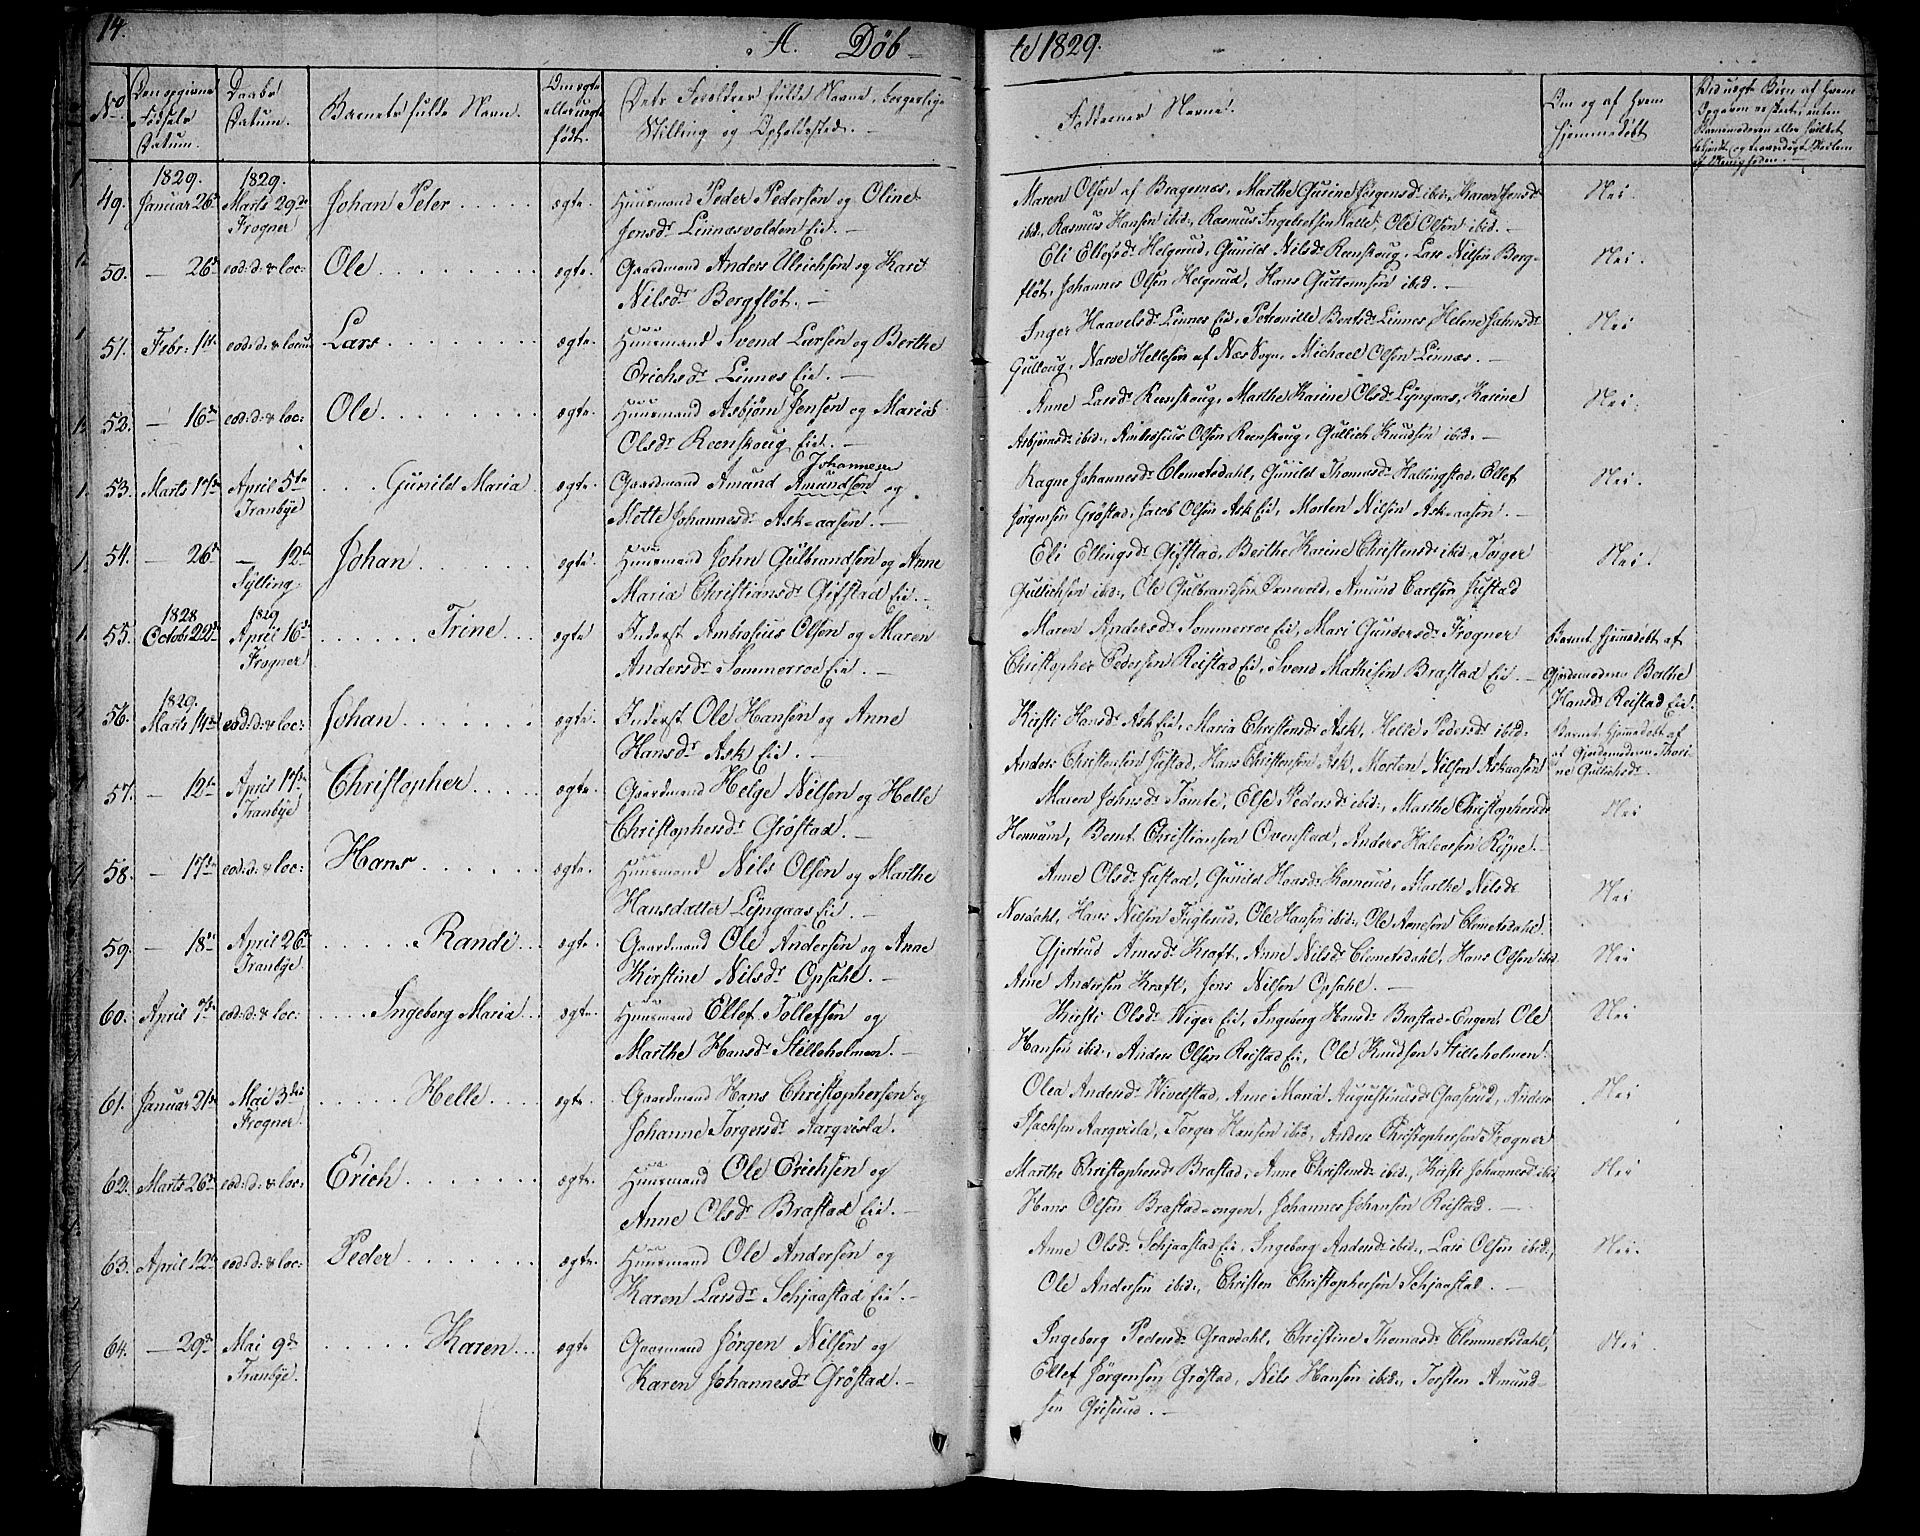 14.
A. Døb-
te 1829.
No
Den opgivne Fødsels Datum.
Daabs Datum.
Barnets fulde Navn.
Om ægte eller uægte født.
Dets Forældres fulde Navne, borgerlige Stilling og Opholdssted.
Faddernes Navne.
Om og af hvem hjemmedøbt
Ved uægte Børn af hvem Opgaven er skeet, enten Barnemoderen eller hvilket
af Menigheden.
49. 1829. Januar 26de 1829. Marts 29de Frogner Johan Peter ægte. Huusmand Peder Pedersen og Oline
Jensdr Linnesvolden Eie.
Maren Olsen af Bragernæs, Marthe Gurine Jørgensdr ibid:, Maren Jensdr
ibid, Rasmus Hansen ibid:, Rasmus Ingebretsen Valle, Ole Olsen ibid.
Nei.
50. — 26de eod: d: & loc: Ole ægte. Gaardmand Anders Ulrichsen og Kari
Nilsdr Bergfløt.
Eli Ellefsdr Helgerud, Gunild Nilsdr Reenskoug, Lars Nilsen Berg-
fløt, Johannes Olsen Helgerud, Hans Guttormsen ibid.
Nei.
51. Febr. 1ste eod: d: & locus Lars ægte. Huusmand Svend Larsen og Berthe
Erichsdr Linnes Eie.
Inger Haavelsdr Linnes Eie, Petronille Berntsdr Linnes, Helene Jahnsdr
Gulloug, Narve Hellesen af Næs Sogn, Michael Olsen Linnæs.
Nei
52. — 16de eod: d: & loc: Ole ægte. Huusmand Asbjørn Jensen og Maria
Olsdr Reenskoug Eie.
Anne Larsdr Reenskoug, Marthe Karine Olsdr Lyngaas, Karine
Asbjørnsdr ibid:, Ambrosius Olsen Reenskoug, Gullich Knudsen ibid.
Nei.
53. Marts 17de April 5te Tranbye Gunild Maria ægte. Gaardmand Amund Amundsen Johannesen og
Mette Johannesdr Ask-aasen.
Ragne Johannesdr Clemetsdahl, Gunild Thomasdr Hallingstad, Ellef
Jørgensen Grøstad, Jacob Olsen Ask Eie, Morten Nilsen Ask-aasen.
Nei.
54. — 26de — 12te Sylling Johan ægte. Huusmand John Gulbrandsen og Anne
Maria Christiansdr Gifstad Eie.
Eli Ellingsdr Gifstad, Berthe Karine Christensdr ibid:, Torger
Gullichsen ibid:, Ole Gulbrandsen Ornevold, Amund Carlsen Justad
Nei.
55. 1828 Octobr 22de 1829 April 16de Frogner Trine ægte Inderst Ambrosius Olsen og Maren
Andersdr Sommerroe Eie.
Maren Andersdr Sommerroe Eie, Mari Gundersdr Frogner
Christopher Pedersen Reistad Eie, Svend Mathisen Brastad Eie.
Barnet hjemmedøbt af
Gjordemoderen Berthe
Hansdr Reistad Eie.
56. 1829. Marts 14de eod: d: & loc: Johan ægte. Inderst Ole Hansen og Anne
Hansdr Ask Eie.
Kirsti Hansdr Ask Eie, Maria Christensdr Ask, Helle Pedersdr ibid:
Anders Christensen Justad, Hans Christensen Ask, Morten Nilsen Askaasen
Barnet hjemmedøbt af
af Gjordemoderen Thori-
ne Gullichsdr.
57. — 12te April 17de Tranbye Christopher ægte. Gaardmand Helge Nilsen og Helle
Christophersdr Grøstad.
Maren Johnsdr Tomte, Else Pedersdr ibid:, Marthe Christophersdr
Hennum, Bernt Christiansen Ovenstad, Anders Halvorsen Rypie.
Nei
58. — 17de eod: d: & loc: Hans ægte. Huusmand Nils Olsen og Marthe
Hansdatter Lyngaas Eie.
Anne Olsdr Justad, Gunild Hansdr Komerud, Marthe Nilsdr
Nordahl, Hans Nilsen Fuglerud, Ole Hansen ibid:, Ole Arnesen Clemetsdahl
Nei
59. — 18de April 26de Tranbye Randi ægte. Gaardmand Ole Andersen og Anne
Kirstine Nilsdr Opsahl.
Gjertrud Arnesdr Kraft, Anne Nilsdr Clemetsdahl, Hans Olsen ibid
Arne Andersen Kraft, Jens Nilsen Opsahl.
Nei
60. April 7de eod: d: & loc: Ingeborg Maria ægte. Huusmand Ellef Tollefsen og
Marthe Hansdr Stilleholmen.
Kirsti Olsdr Viger Eie, Ingeborg Hansdr Brastad-Engen, Ole
Hansen ibid:, Anders Olsen Reistad Eie, Ole Knudsen Stilleholmen.
Nei
61. Januar 21de Mai 3die Frogner Helle ægte. Gaardmand Hans Christophersen og
Johanne Torgersdr Aarqvisla.
Olea Andersdr Wivelstad, Anne Maria Augustinusdr Gaaserud, Anders
Isachsen Aarqvisla, Torger Hansen ibid, Anders Christophersen Frogner
Nei
62. Marts 26de eod: d: & loc: Erich ægte. Huusmand Ole Erichsen og
Anne Olsdr Brastad Eie.
Marthe Christophersdr Brastad, Anne Christensdr ibid:, Kirsti Johannesdr ibid,
Hans Olsen Brastad-engen, Johannes Johansen Reistad.
Nei
63. April 12te eod: d: & loc: Peder ægte. Huusmand Ole Andersen og
Karen Larsdr Schjaastad Eie.
Anne Olsdr Schjaastad Eie, Ingeborg Andersdr ibid:, Lars Olsen ibid:,
Ole Andersen ibid:, Christen Christophersen Schjaastad.
Nei.
64. — 29de Mai 9de Tranbye Karen ægte Gaarmand Jørgen Nilsen og
Karen Johannesdr Grøstad.
Ingeborg Pedersdr Gravdahl, Christine Thomasdr Clemmetsdahl,
Ellef Jørgensen Grøstad, Nils Hansen ibid:, Torsten Amund-
sen Griserud.
Nei.